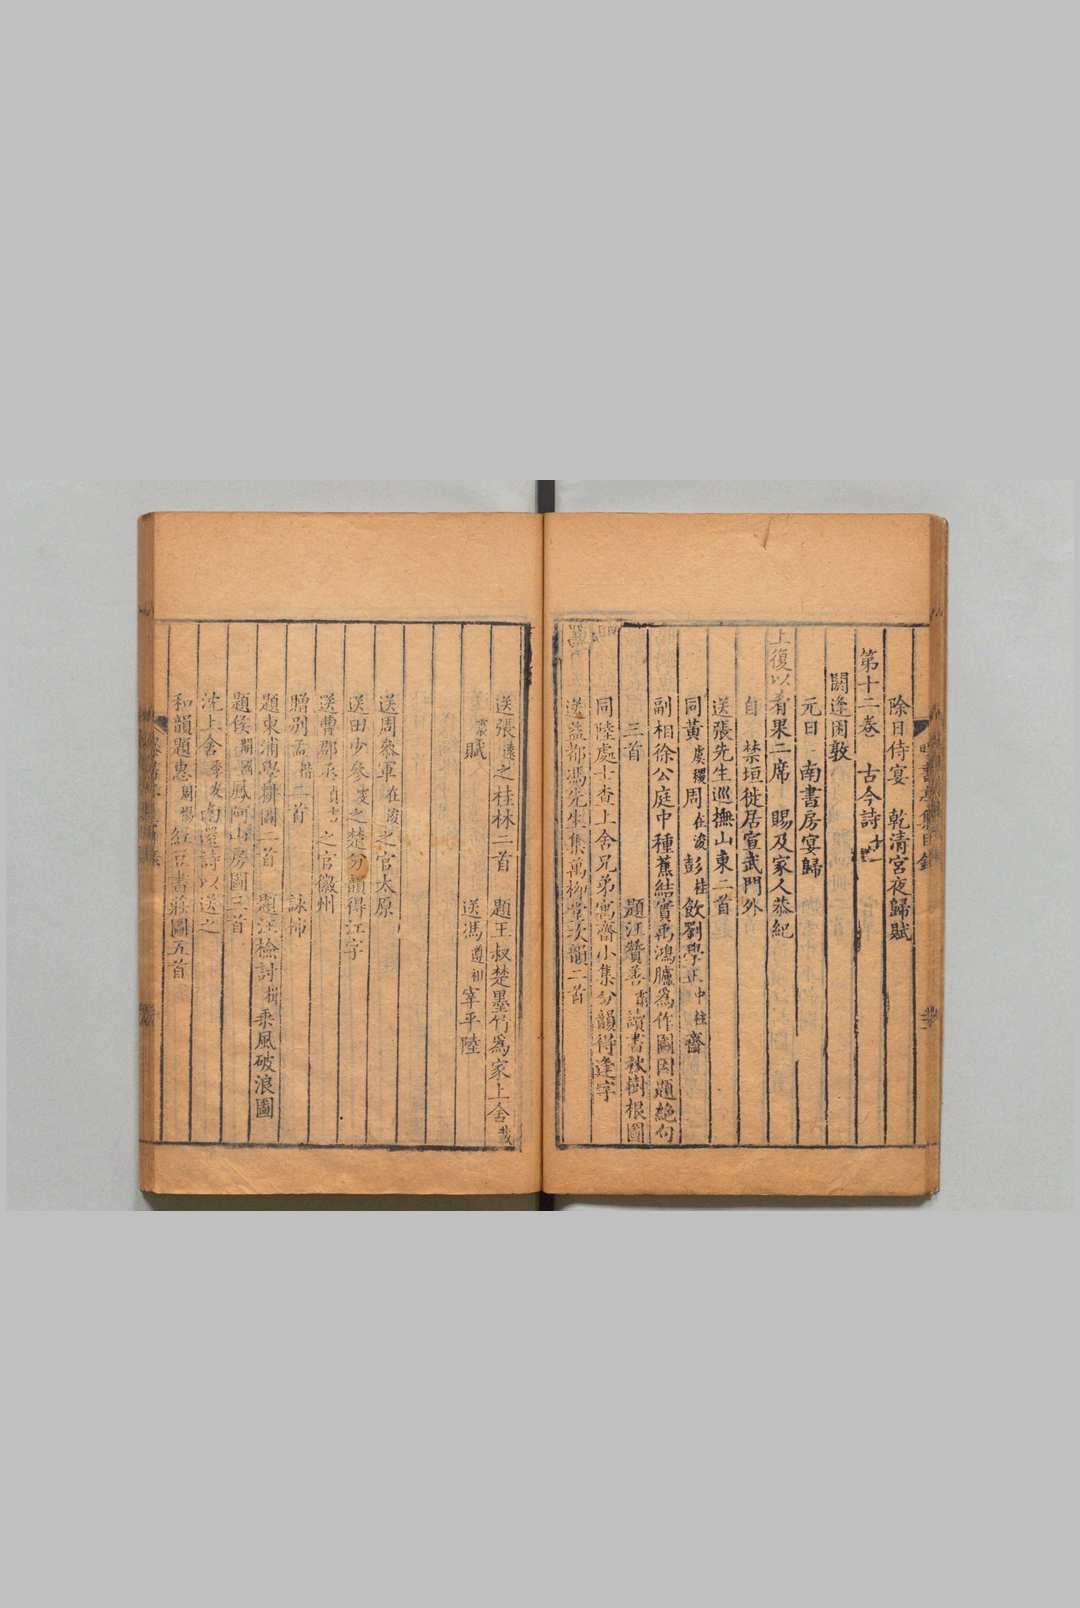 除日侍宴　乾清宮夜歸賦
第十二卷　古今詩十一
閼逢困敦
元日　南書房宴歸
上復以肴果二席　賜及家人恭紀
自　禁垣徙居宣武門外
送張先生巡撫山東二首
同黃虞稷周在浚彭桂飲劉學正中柱齋
副相徐公庭中種蕉結實禹鴻臚爲作圖因題絶句
三首　題汪贊善　讀書秋樹根圖
同陸處士查上舍兄弟寓齋小集分韻得逢字
送益都馮先生集萬柳堂次韻二首
送張遠之桂林二首　題王叔楚墨竹爲家上舍載
賦　送馮遵祖宰平陸
送周參軍在浚之官太原
送田少參雯之楚分韻得江字
送曹郡丞貞吉之官徽州
贈別孟楷二首　詠
題東浦學耕圖二首　題汪檢討楫乘風破浪圖
題侯開國鳳阿山房圖二首
沈上舍季友南還詩以送之
和韻題惠周惕紅豆書莊圖五首